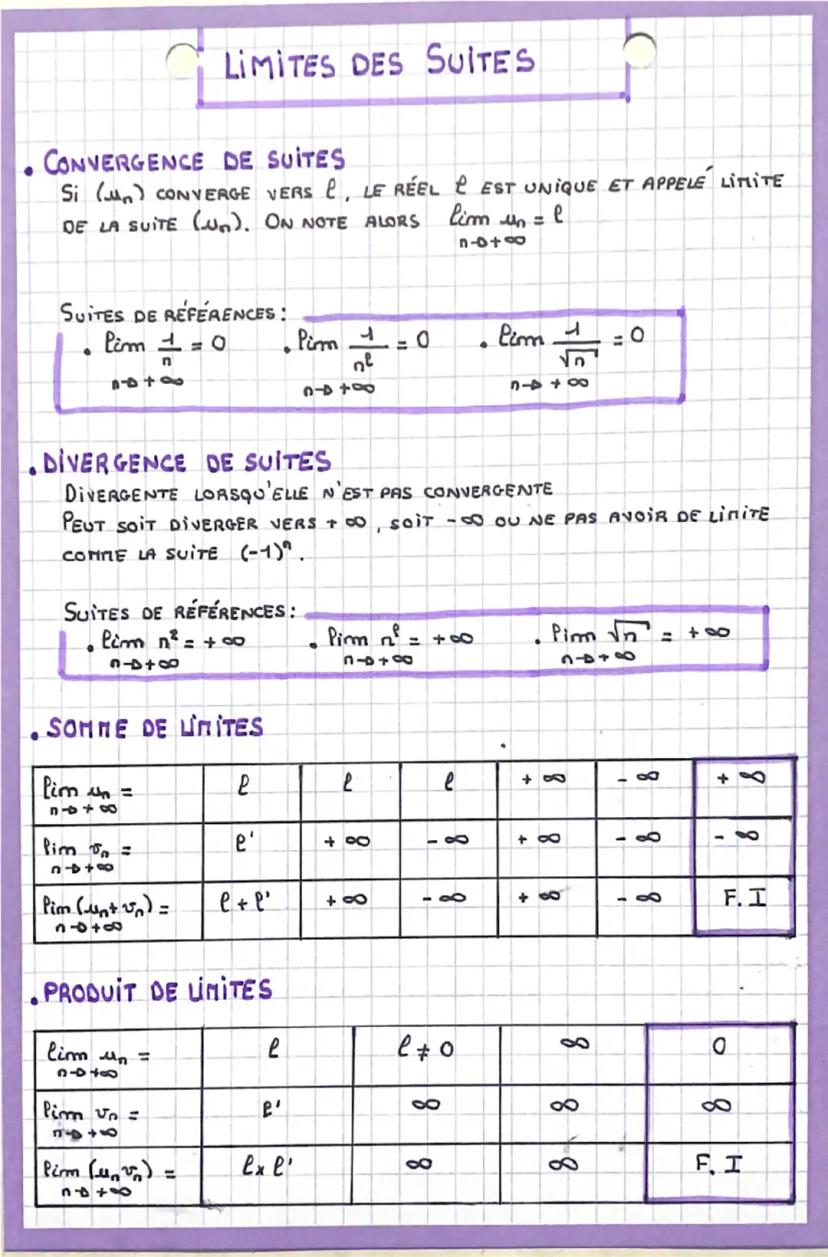 LIMITES DES SUITES
• CONVERGENCE DE SUITES
SI (un) CONVERGE VERS ℓ, LE RÉEL ℓ EST UNIQUE ET APPELÉ LIMITE
DE LA SUITE (un). ON NOTE ALORS lim un = ℓ
n→+∞
SUITES DE RÉFÉRENCES :
• lim 1/n = 0 • lim 1/n^ℓ = 0 • lim 1/√n = 0
n→+∞ n→+∞ n→+∞
• DIVERGENCE DE SUITES
DIVERGENTE LORSQU'ELLE N'EST PAS CONVERGENTE
PEUT SOIT DIVERGER VERS +∞, SOIT -∞ OU NE PAS AVOIR DE LIMITE
COMME LA SUITE (-1)^n.
SUITES DE RÉFÉRENCES :
• lim n² = +∞ • lim n^ℓ = +∞ • lim √n = +∞
n→+∞ n→+∞ n→+∞
• SOMME DE LIMITES
lim un = ℓ ℓ ℓ +∞ -∞ +∞
n→+∞
lim vn = ℓ' +∞ -∞ +∞ -∞ -∞
n→+∞
lim (un+vn) = ℓ+ℓ' +∞ -∞ +∞ -∞ F.I
n→+∞
• PRODUIT DE LIMITES
lim un = ℓ ℓ≠0 ∞ 0
n→+∞
lim vn = ℓ' ∞ ∞ ∞
n→+∞
lim (un vn) = ℓ×ℓ' ∞ ∞ F.I
n→+∞